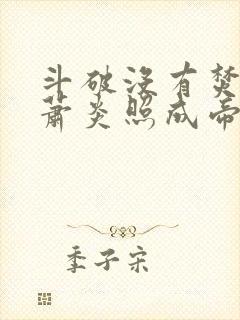 斗破没有焚
萧炎照成帝
季子宋